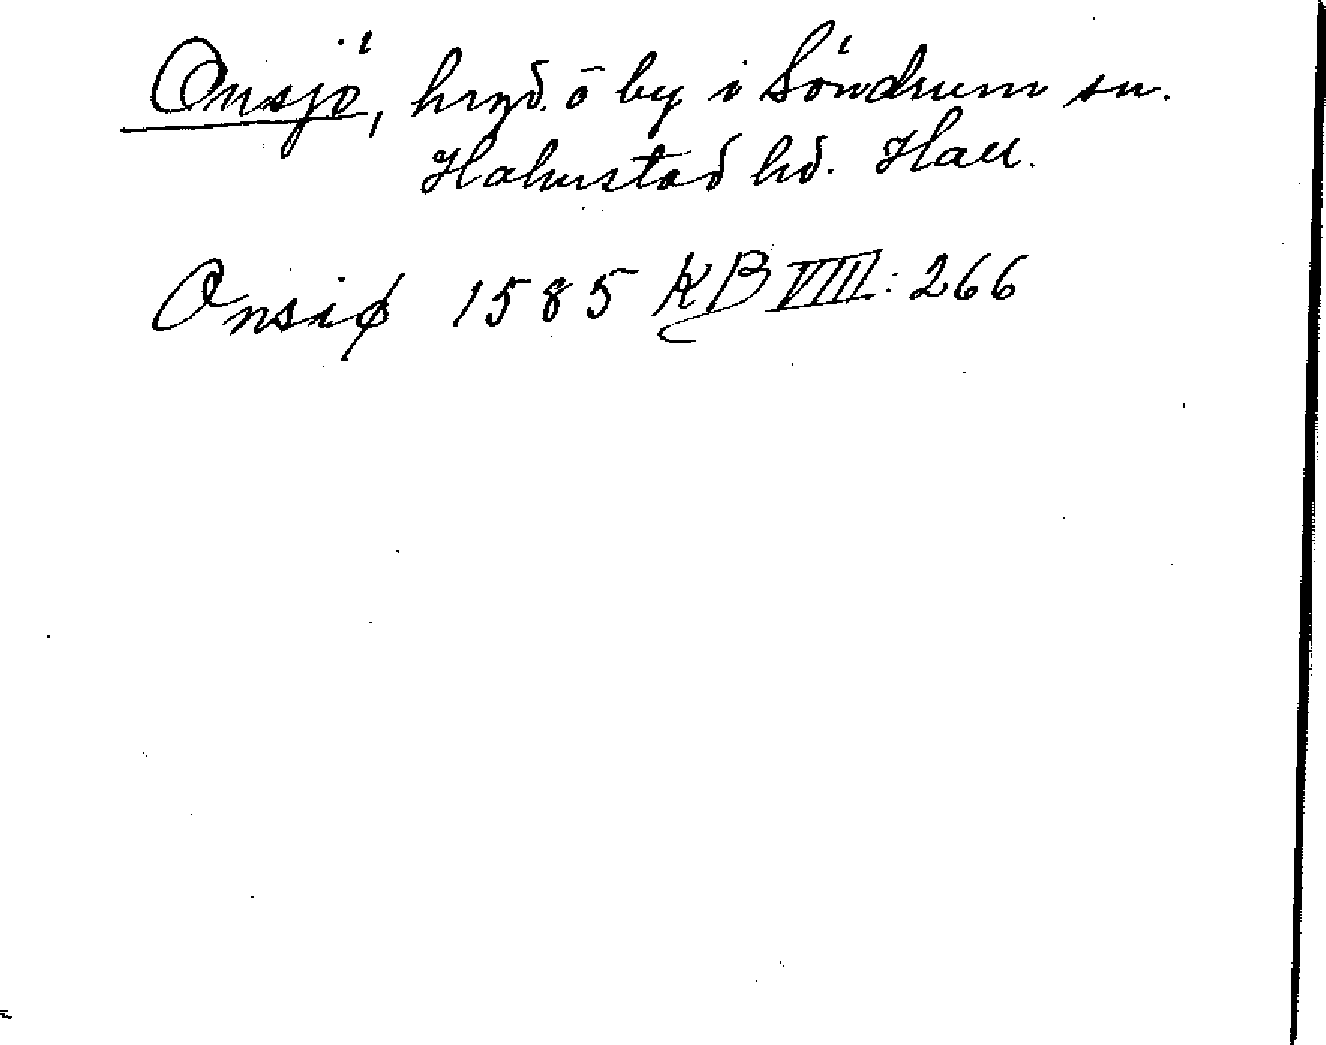 Onsjö, hrgd. o by i Söndrum sn.
Halmstad hd. Hall.
Onsiø 1585 KB VIII: 266